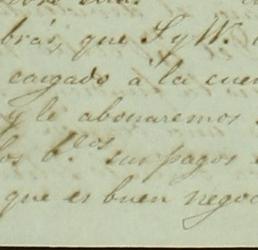 brás, que S y W.
cargado á la cuen
y le abonaremos
los b.os sus pagos
que es buen negoc